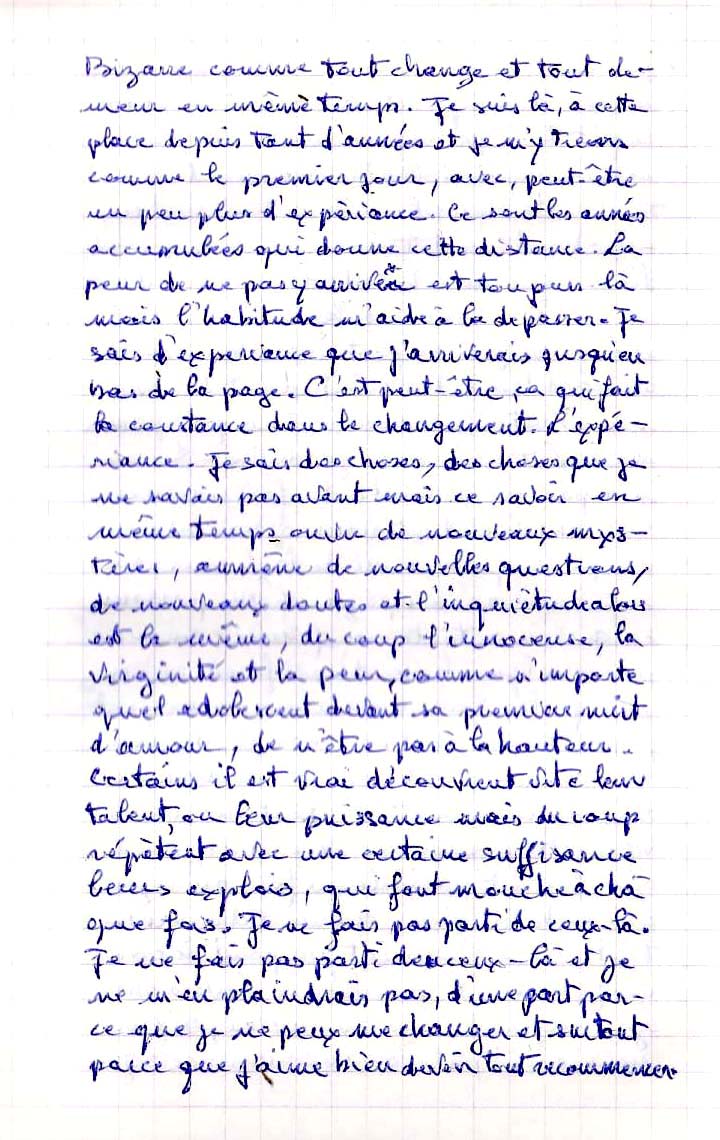 Bizarre comme tout change et tout de-
meur en mème temps. Je suis là, à cette
place depuis tant d'années et je m'y trouv
comme le premier jour, avec, peut-être
un peu plus d'expèriance. Ce sont les années
accumulées qui donne cette distance. La
peur de ne pas y arriver est toujours là
mais l'habitude m'aide à la depasser. Je
sais d'experiance que j'arriverais jusqu'en
bas de la page. C'est peut-être ça qui fait
la constance dans le changement. L'expé-
riance. Je sais des choses, des choses que je
ne savais pas avant mais ce savoir en
même temps ouvre de nouveaux mys-
tères, emmène de nouvelles questions,
de nouveaux doutes et l'inquiètude alors
est la même, du coup l'innocence, la
virginité et la peur, comme n'importe
quel adolescent devant sa première nuit
d'amour, de n'être pas à la hauteur.
Certains il est vrai découvrent vite leur
talent, ou leur puissance mais du coup
répètent avec une certaine suffisance
leurs explois, qui font mouche à cha
que fois. Je ne fais pas parti de ceux-là.
Je ne fais pas parti de ceux-là et je
ne m'en plaindrais pas, d'une part par-
ce que je ne peux me changer et surtout
parce que j'aime bien devoir tout recommencer.